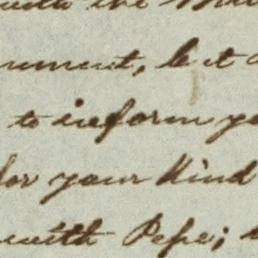 with the
ument, let
to inform yo
for your kind
with Pepe;